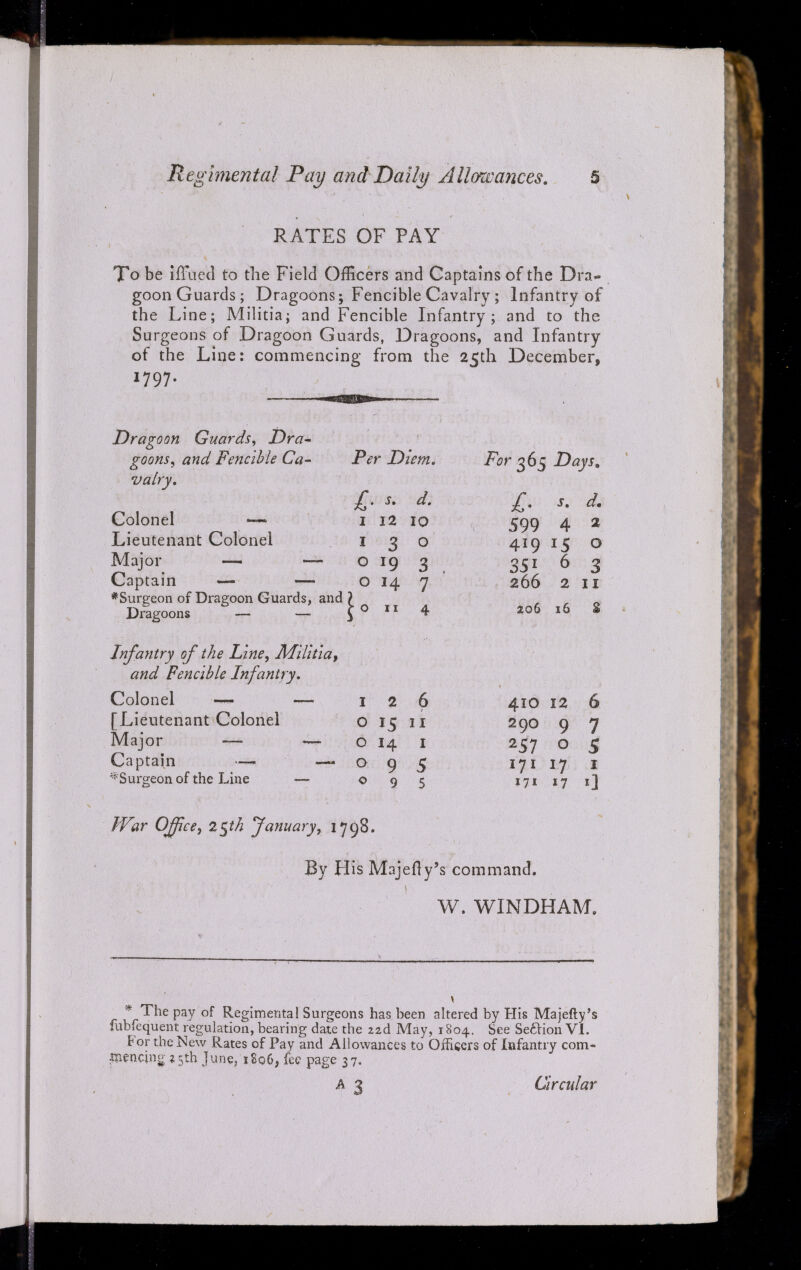 Regimental Pay and Daily Allowances. 5
RATES OF PAY
To be iſſued to the Field Officers and Captains of the Dra-
goon Guards; Dragoons; Fencible Cavalry; Infantry of
the Line; Militia; and Fencible Infantry; and to the
Surgeons of Dragoon Guards, Dragoons, and Infantry
of the Line: commencing from the 25th December,
1797.
Dragoon Guards, Dra-
goons, and Fencible Ca- Per Diem. For 365 Days.
valry.
£. s. d. £. s. d.
Colonel — 1 12 10 599 4 2
Lieutenant Colonel 1 3 0 419 15 0
Major — — 0 19 3 351 6 3
Captain — — 0 14 7 266 2 11
*Surgeon of Dragoon Guards, and }
Dragoons — — } 0 11 4 206 16 8
Infantry of the Line, Militia,
and Fencible Infantry.
Colonel — — 1 2 6 410 12 6
[Lieutenant Colonel 0 15 11 290 9 7
Major — — 0 14 1 257 0 5
Captain — — 0 9 5 171 17 1
*Surgeon of the Line — 0 9 5 171 17 1]
War Office, 25th January, 1798.
By His Majeſty's command.
W. WINDHAM.
* The pay of Regimental Surgeons has been altered by His Majeſty's
ſubſequent regulation, bearing date the 22d May, 1804. See Section VI.
For the New Rates of Pay and Allowances to Officers of Infantry com-
mencing 25th June, 1806, ſee page 37.
A 3 Circular